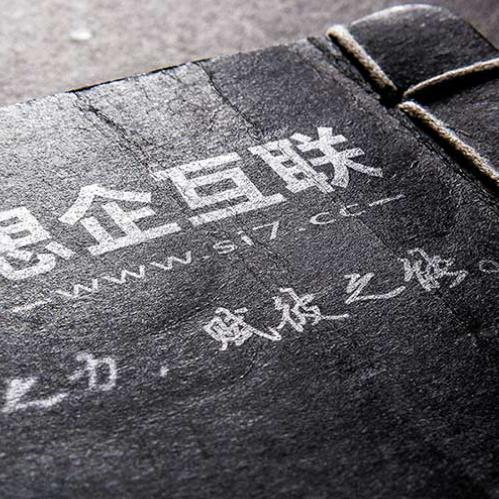 思企互联
—www.si7.cc—
之力，赋彼之能。